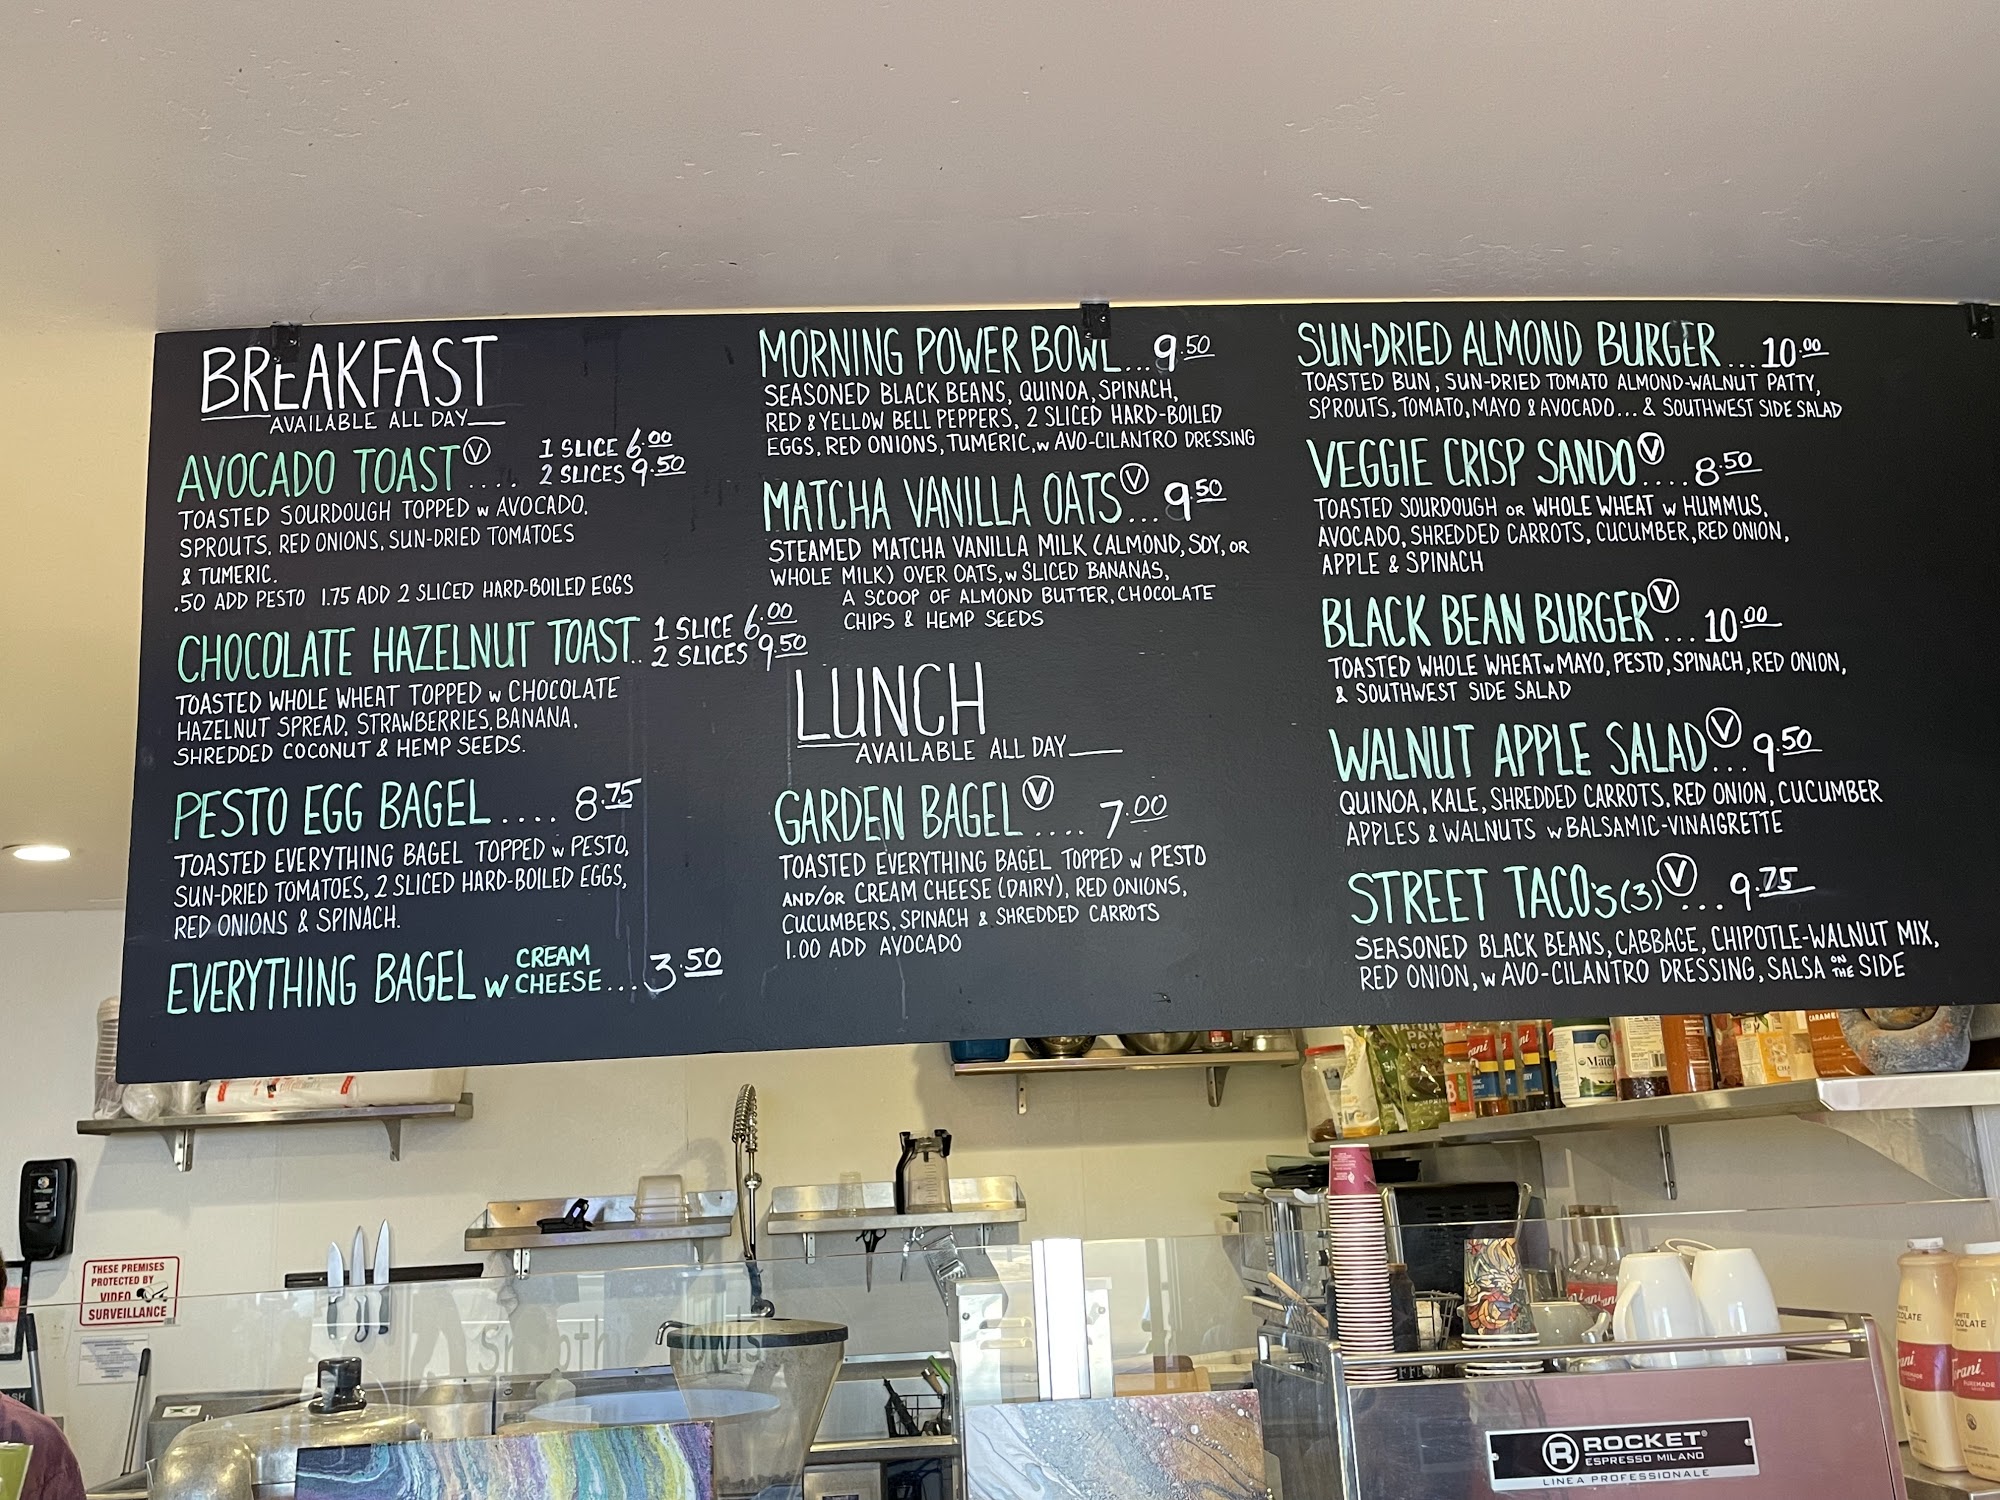 BREAKFAST
AVAILABLE ALL DAY
AVOCADO TOAST Ⓥ .... 1 SLICE 6.00
2 SLICES 9.50
TOASTED SOURDOUGH TOPPED w AVOCADO,
SPROUTS, RED ONIONS, SUN-DRIED TOMATOES
& TUMERIC.
.50 ADD PESTO 1.75 ADD 2 SLICED HARD-BOILED EGGS
CHOCOLATE HAZELNUT TOAST.. 1 SLICE 6.00
2 SLICES 9.50
TOASTED WHOLE WHEAT TOPPED w CHOCOLATE
HAZELNUT SPREAD, STRAWBERRIES, BANANA,
SHREDDED COCONUT & HEMP SEEDS.
PESTO EGG BAGEL .... 8.75
TOASTED EVERYTHING BAGEL TOPPED w PESTO,
SUN-DRIED TOMATOES, 2 SLICED HARD-BOILED EGGS,
RED ONIONS & SPINACH.
EVERYTHING BAGEL w CREAM CHEESE... 3.50
MORNING POWER BOWL... 9.50
SEASONED BLACK BEANS, QUINOA, SPINACH,
RED & YELLOW BELL PEPPERS, 2 SLICED HARD-BOILED
EGGS, RED ONIONS, TUMERIC, w AVO-CILANTRO DRESSING
MATCHA VANILLA OATS Ⓥ ... 9.50
STEAMED MATCHA VANILLA MILK (ALMOND, SOY, OR
WHOLE MILK) OVER OATS, w SLICED BANANAS,
A SCOOP OF ALMOND BUTTER, CHOCOLATE
CHIPS & HEMP SEEDS
LUNCH
AVAILABLE ALL DAY
GARDEN BAGEL Ⓥ .... 7.00
TOASTED EVERYTHING BAGEL TOPPED w PESTO
AND/OR CREAM CHEESE (DAIRY), RED ONIONS,
CUCUMBERS, SPINACH & SHREDDED CARROTS
1.00 ADD AVOCADO
SUN-DRIED ALMOND BURGER ... 10.00
TOASTED BUN, SUN-DRIED TOMATO ALMOND-WALNUT PATTY,
SPROUTS, TOMATO, MAYO & AVOCADO... & SOUTHWEST SIDE SALAD
VEGGIE CRISP SANDO Ⓥ .... 8.50
TOASTED SOURDOUGH OR WHOLE WHEAT w HUMMUS,
AVOCADO, SHREDDED CARROTS, CUCUMBER, RED ONION,
APPLE & SPINACH
BLACK BEAN BURGER Ⓥ ... 10.00
TOASTED WHOLE WHEAT w MAYO, PESTO, SPINACH, RED ONION,
& SOUTHWEST SIDE SALAD
WALNUT APPLE SALAD Ⓥ ... 9.50
QUINOA, KALE, SHREDDED CARROTS, RED ONION, CUCUMBER
APPLES & WALNUTS w BALSAMIC-VINAIGRETTE
STREET TACO'S (3) Ⓥ ... 9.75
SEASONED BLACK BEANS, CABBAGE, CHIPOTLE-WALNUT MIX,
RED ONION, w AVO-CILANTRO DRESSING, SALSA ON THE SIDE
THESE PREMISES
PROTECTED BY
VIDEO
SURVEILLANCE
R ROCKET
ESPRESSO MILANO
LINEA PROFESSIONALE